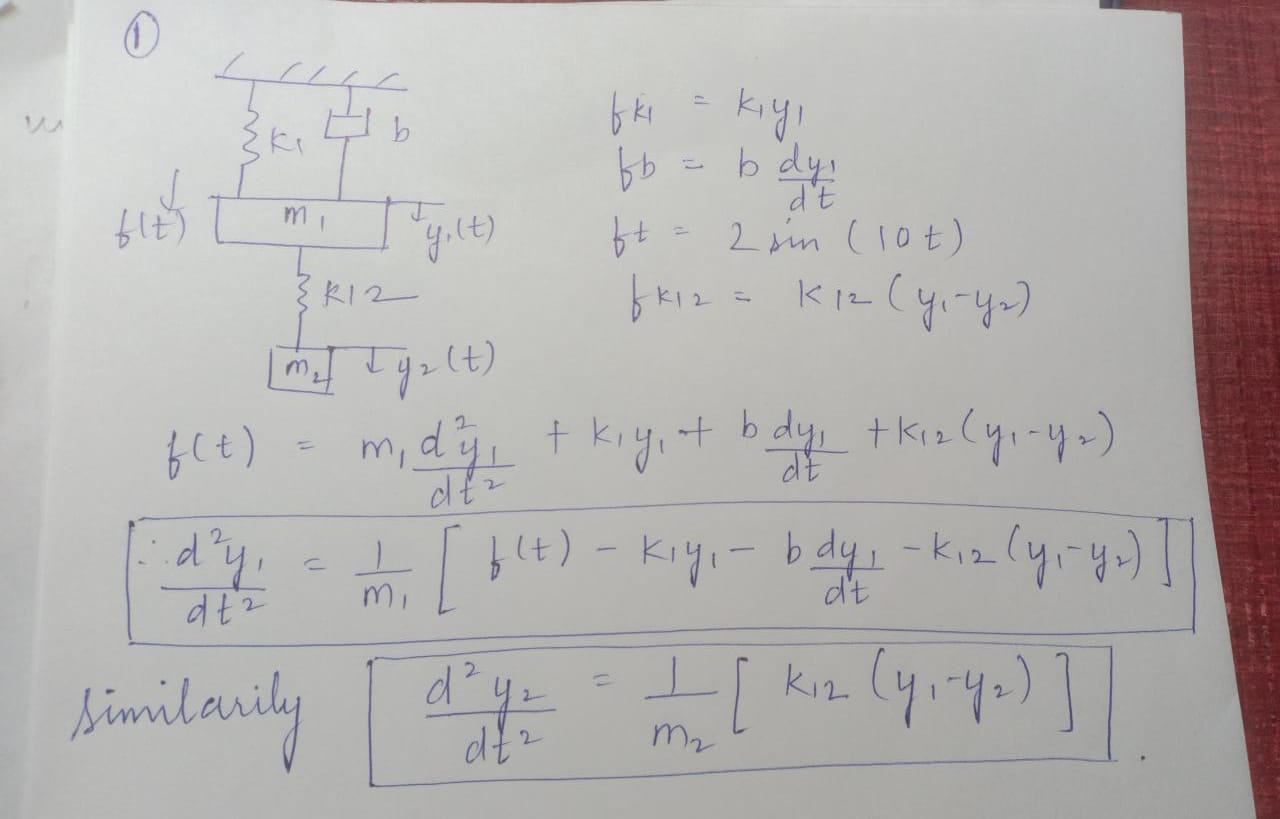 ①
k1
b
f(t)
m1
y1(t)
k12
m2
y2(t)
fk1 = k1y1
fb = b dy1/dt
ft = 2 sin (10t)
fk12 = k12 (y1-y2)
f(t) = m1 d²y1/dt² + k1y1 + b dy1/dt + k12 (y1-y2)
∴ d²y1/dt² = 1/m1 [ f(t) - k1y1 - b dy1/dt - k12 (y1-y2) ]
similarily d²y2/dt² = 1/m2 [ k12 (y1-y2) ] .